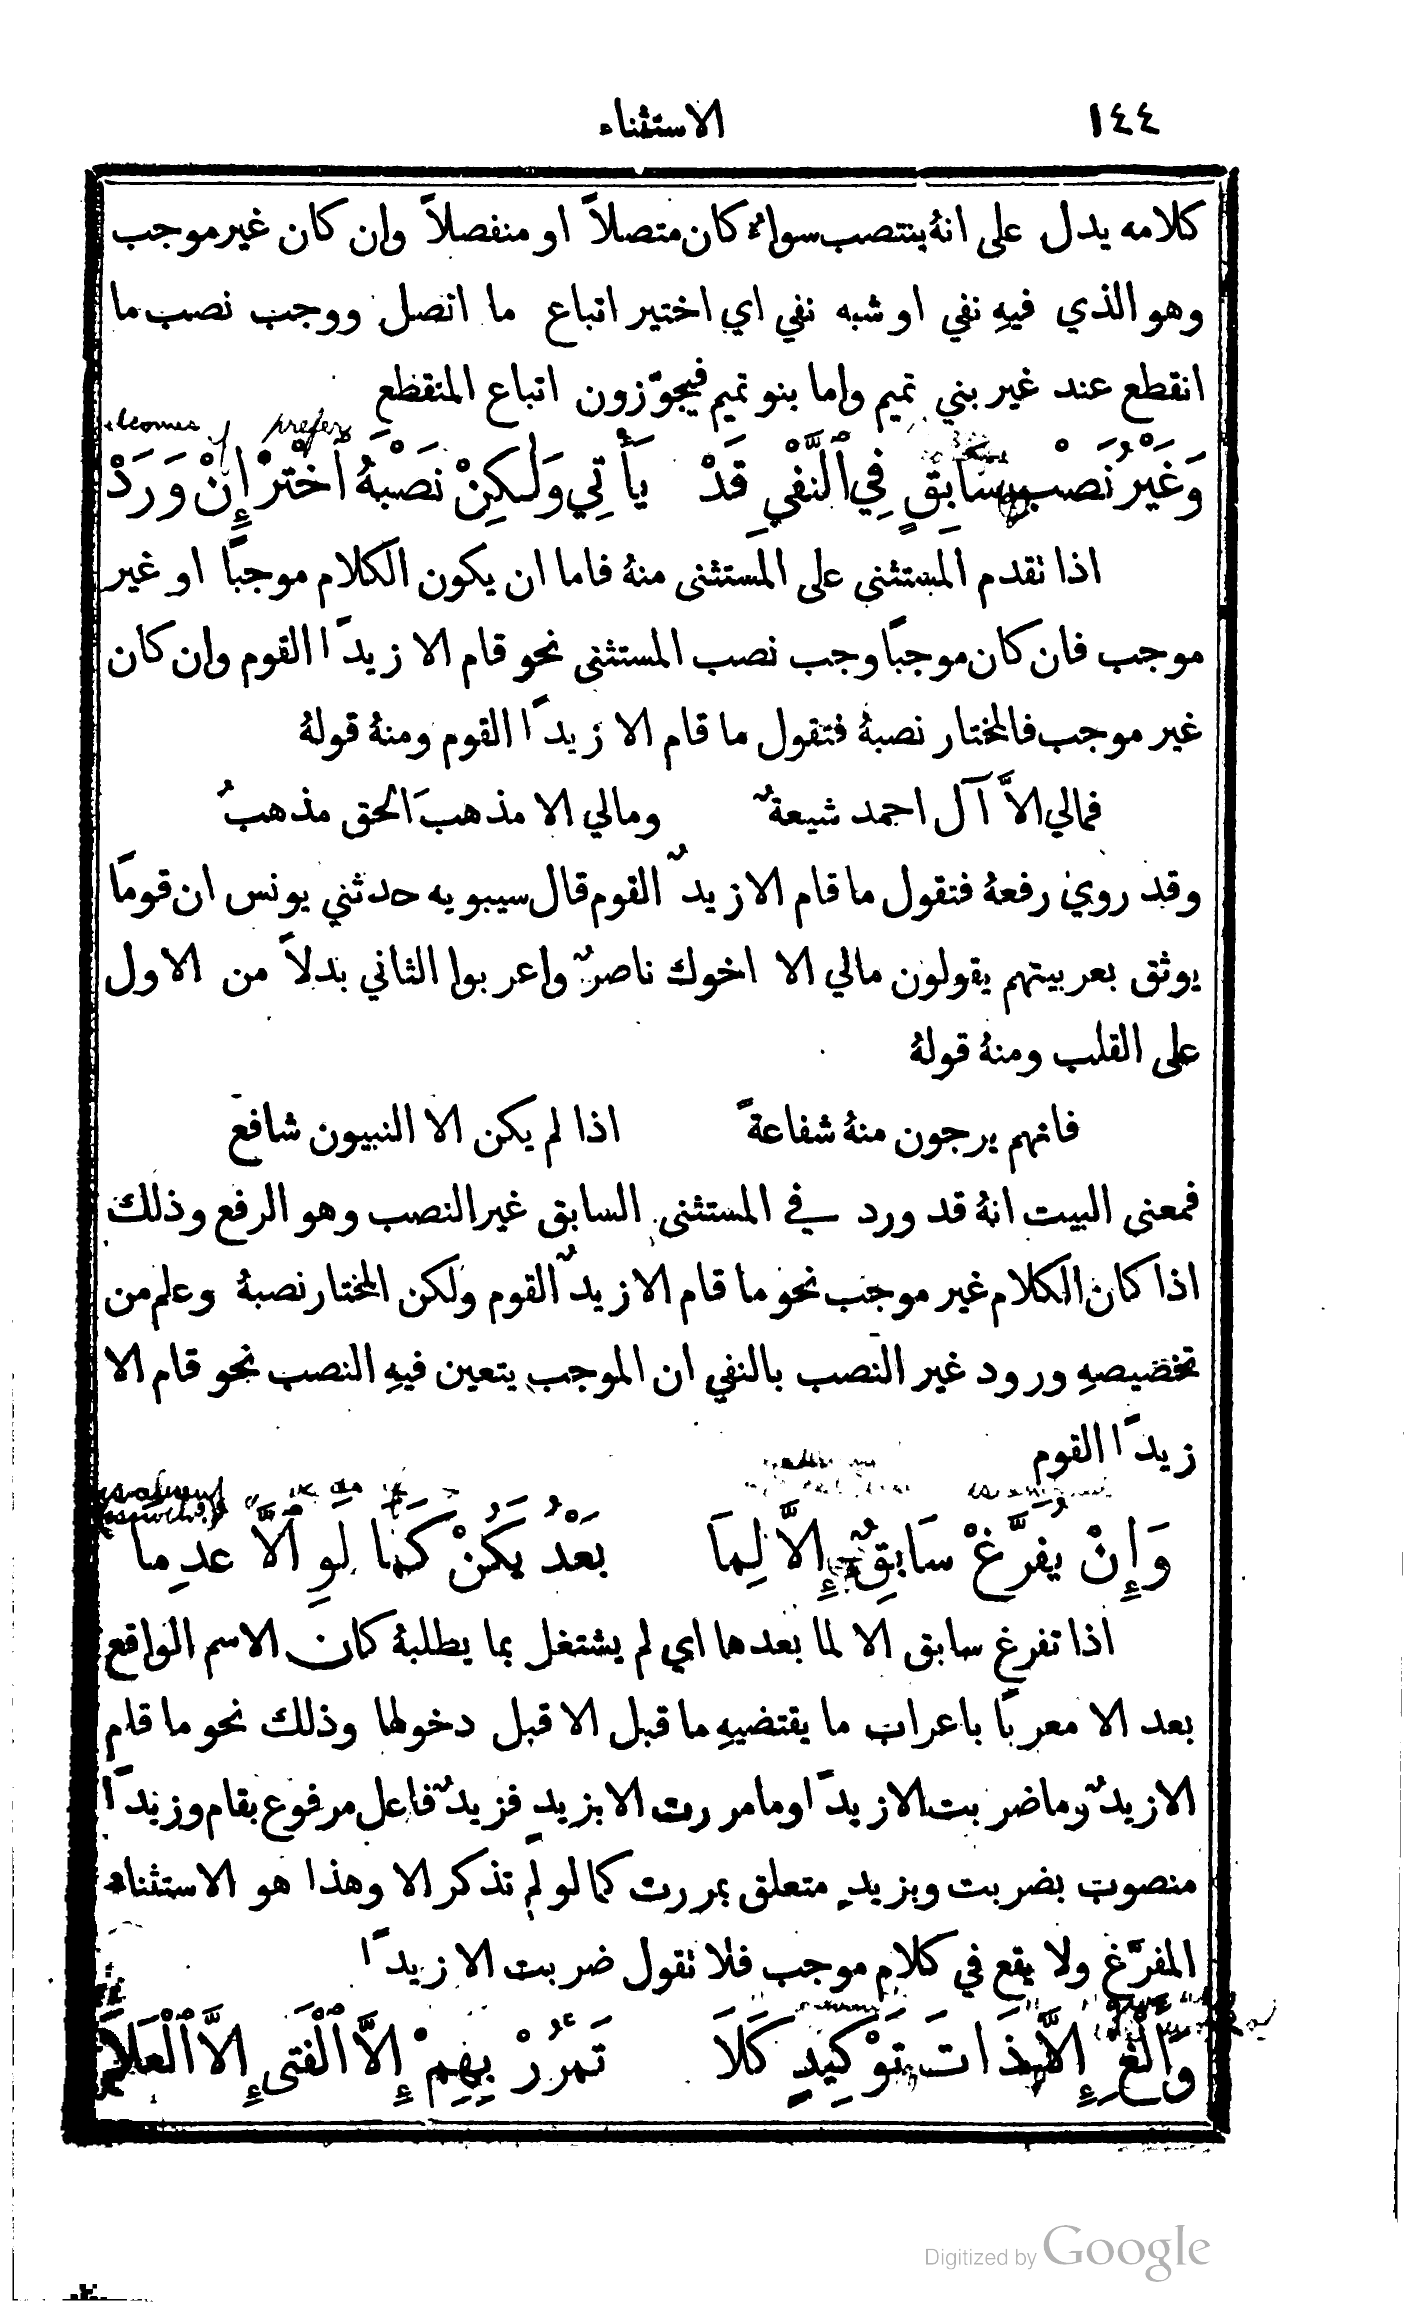 ١٤٤ الاستثناء
كلامه يدل على انهُ ينتصب سواءٌ كان متصلاً او منفصلاً وان كان غير موجب
وهو الذي فيهِ نفي او شبه نفي اي اختير اتباع ما اتصل ووجب نصب ما
انقطع عند غير بني تميم واما بنو تميم فيجوّزون اتباع المنقطع
prefer
وَغَيْرُ نَصْبِ سَابِقٍ فِي ٱلنَّفْيِ قَدْ يَأْتِي وَلٰكِنْ نَصْبَهُ ٱخْتَرْ إِنْ وَرَدْ
اذا تقدم المستثنى على المستثنى منهُ فاما ان يكون الكلام موجبًا او غير
موجب فان كان موجبًا وجب نصب المستثنى نحو قام الا زيدًا القوم وان كان
غير موجب فالمختار نصبهُ فتقول ما قام الا زيدًا القوم ومنهُ قولهُ
فمالي الاَّ آل احمد شيعةٌ ومالي الا مذهبَ الحق مذهبُ
وقد روي رفعهُ فتقول ما قام الا زيدٌ القوم قال سيبويه حدثني يونس ان قومًا
يوثق بعربيتهم يقولون مالي الا اخوك ناصرٌ واعربوا الثاني بدلاً من الاول
على القلب ومنهُ قولهُ
فانهم يرجون منهُ شفاعةً اذا لم يكن الا النبيون شافع
فمعنى البيت انهُ قد ورد في المستثنى السابق غير النصب وهو الرفع وذلك
اذا كان الكلام غير موجب نحو ما قام الا زيدٌ القوم ولكن المختار نصبهُ وعلم من
تخصيصهِ ورود غير النصب بالنفي ان الموجب يتعين فيهِ النصب نحو قام الا
زيدًا القوم
وَإِنْ يُفَرَّغْ سَابِقٌ إِلاَّ لِمَا بَعْدُ يَكُنْ كَمَا لَوِ ٱلاَّ عدِمَا
اذا تفرغ سابق الا لما بعدها اي لم يشتغل بما يطلبهُ كان الاسم الواقع
بعد الا معربًا باعراب ما يقتضيهِ ما قبل الا قبل دخولها وذلك نحو ما قام
الا زيدٌ وما ضربت الا زيدًا وما مررت الا بزيدٍ فزيدٌ فاعل مرفوع بقام وزيدًا
منصوب بضربت وبزيدٍ متعلق بمررت كما لو لم تذكر الا وهذا هو الاستثناء
المفرَّغ ولا يقع في كلام موجب فلا تقول ضربت الا زيدًا
وَأَلْغِ إِلاَّ ذَاتَ تَوْكِيدٍ كَلَا تَمْرُرْ بِهِمْ إِلاَّ ٱلْفَتَى إِلاَّ ٱلْعَلَا
Digitized by Google